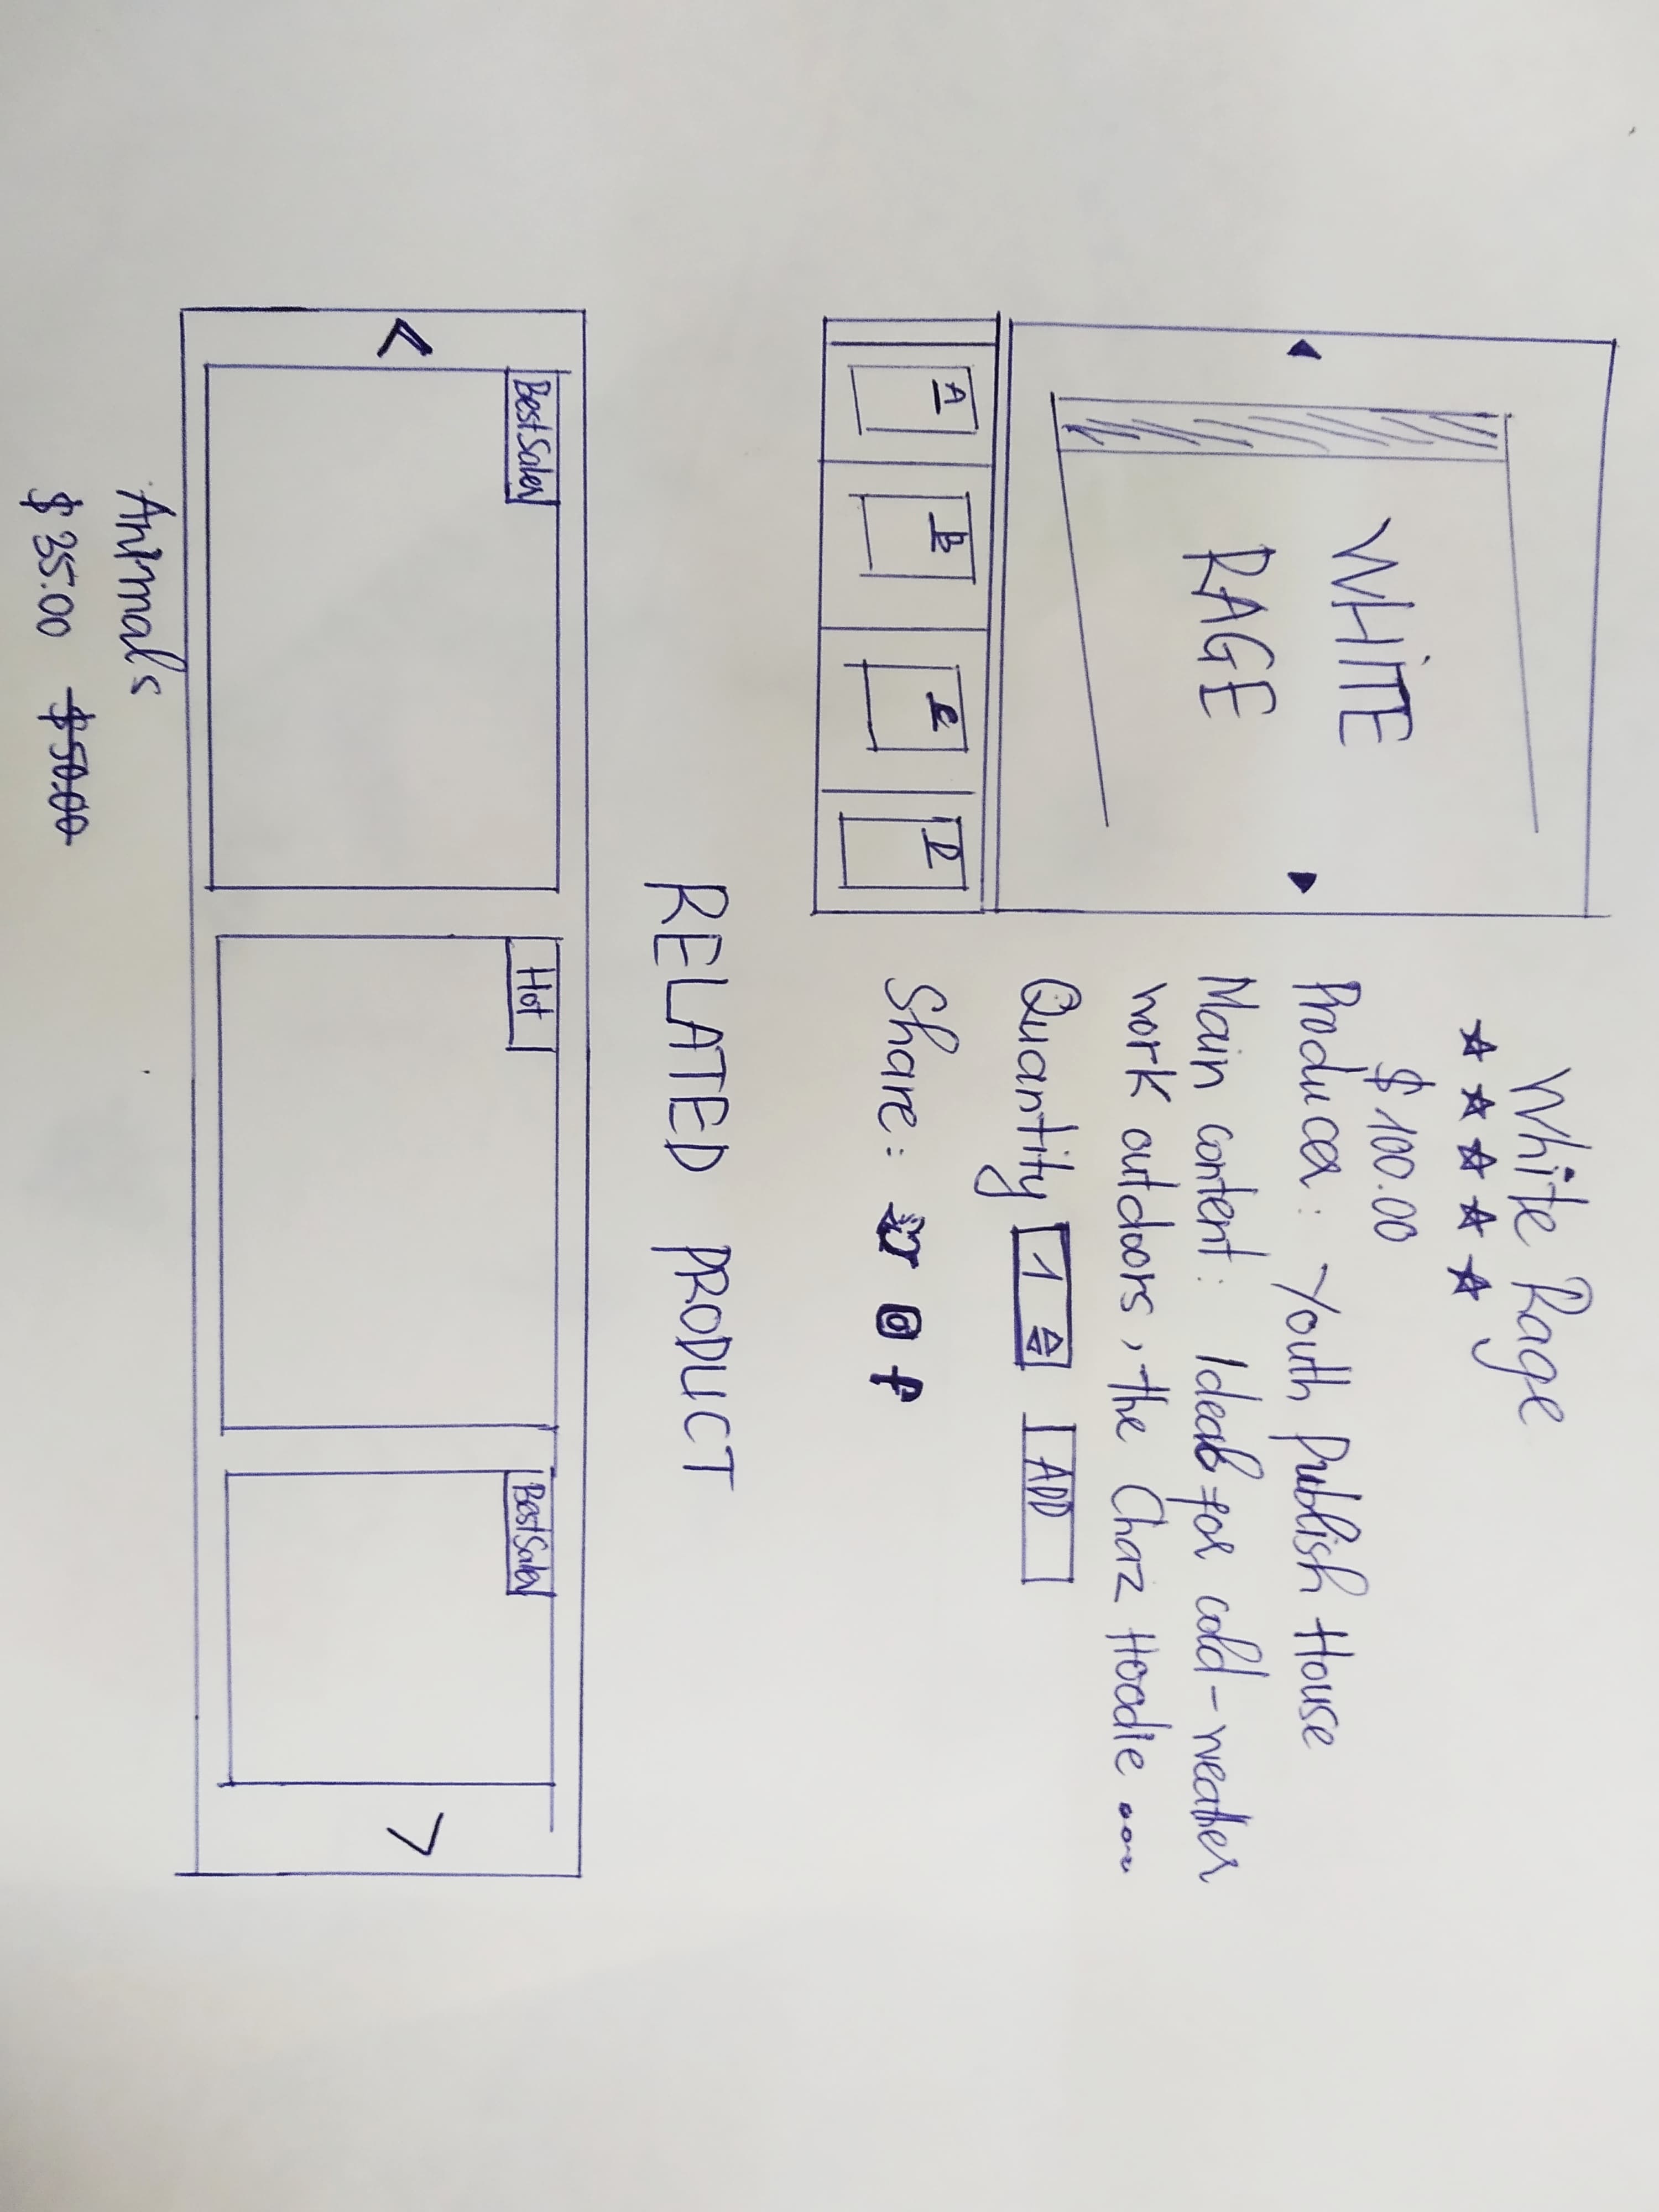 WHITE
RAGE
A
B
C
D
White Rage
$100.00
Producer: Youth Publish House
Main content: Ideal for cold-weather
work outdoors, the Chaz Hoodie ...
Quantity 1 ADD
Share:
RELATED PRODUCT
Best Saler
Hot
Best Saler
<
>
Animals
$35.00 $50.00